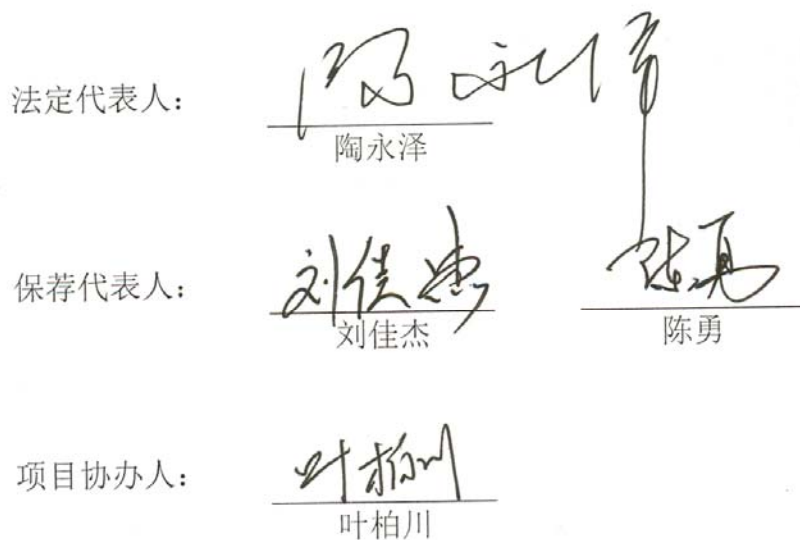 法定代表人：
陶永泽
保荐代表人：
刘佳杰 陈勇
刘佳杰 陈勇
项目协办人：
叶柏川
叶柏川